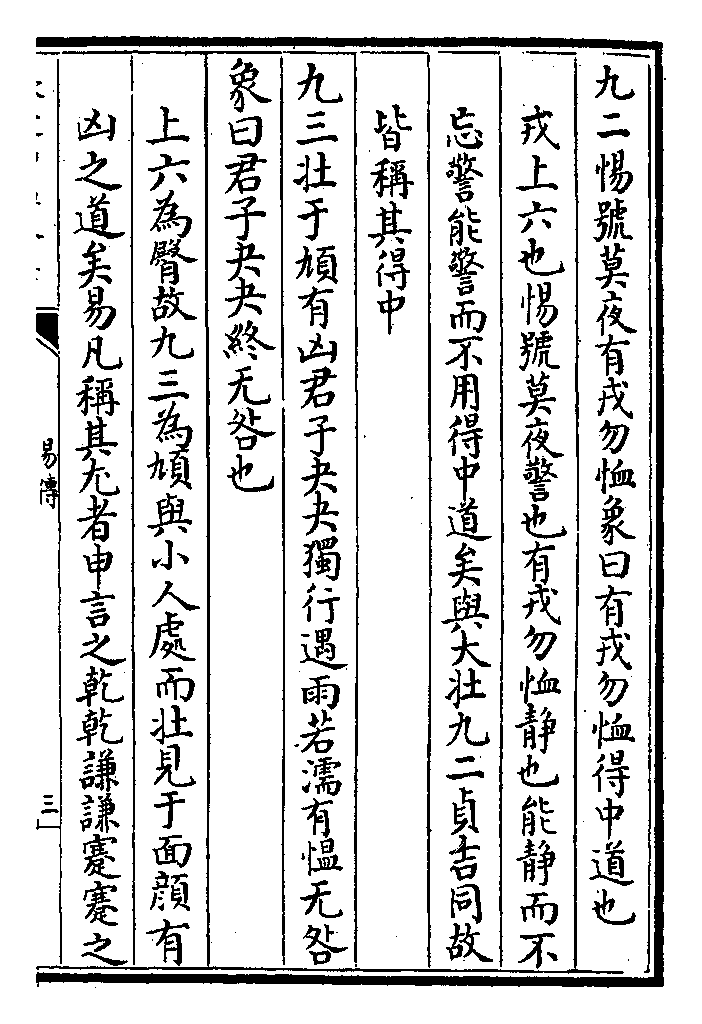 九二惕號莫夜有戎勿恤象曰有戎勿恤得中道也
戎上六也惕號莫夜警也有戎勿恤静也能静而不
忘警能警而不用得中道矣與大壮九二貞吉同故
皆稱其得中
九三壮于頄有凶君子夬夬獨行遇雨若濡有愠无咎
象曰君子夬夬終无咎也
上六為臀故九三為頄與小人處而壮見于面顔有
凶之道矣易凡稱其尤者申言之乾乾謙謙蹇蹇之
易傳
三